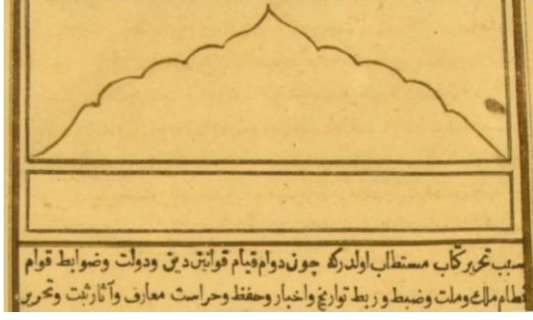 سبب تحرير كتاب مستطاب اولدركه چون دوام قيام قوانين دين ودولت وضوابط قوام
نظام ملك وملت وضبط و ربط تواريخ واخبار وحفظ وحراست معارف وآثار ثبت وتحرير